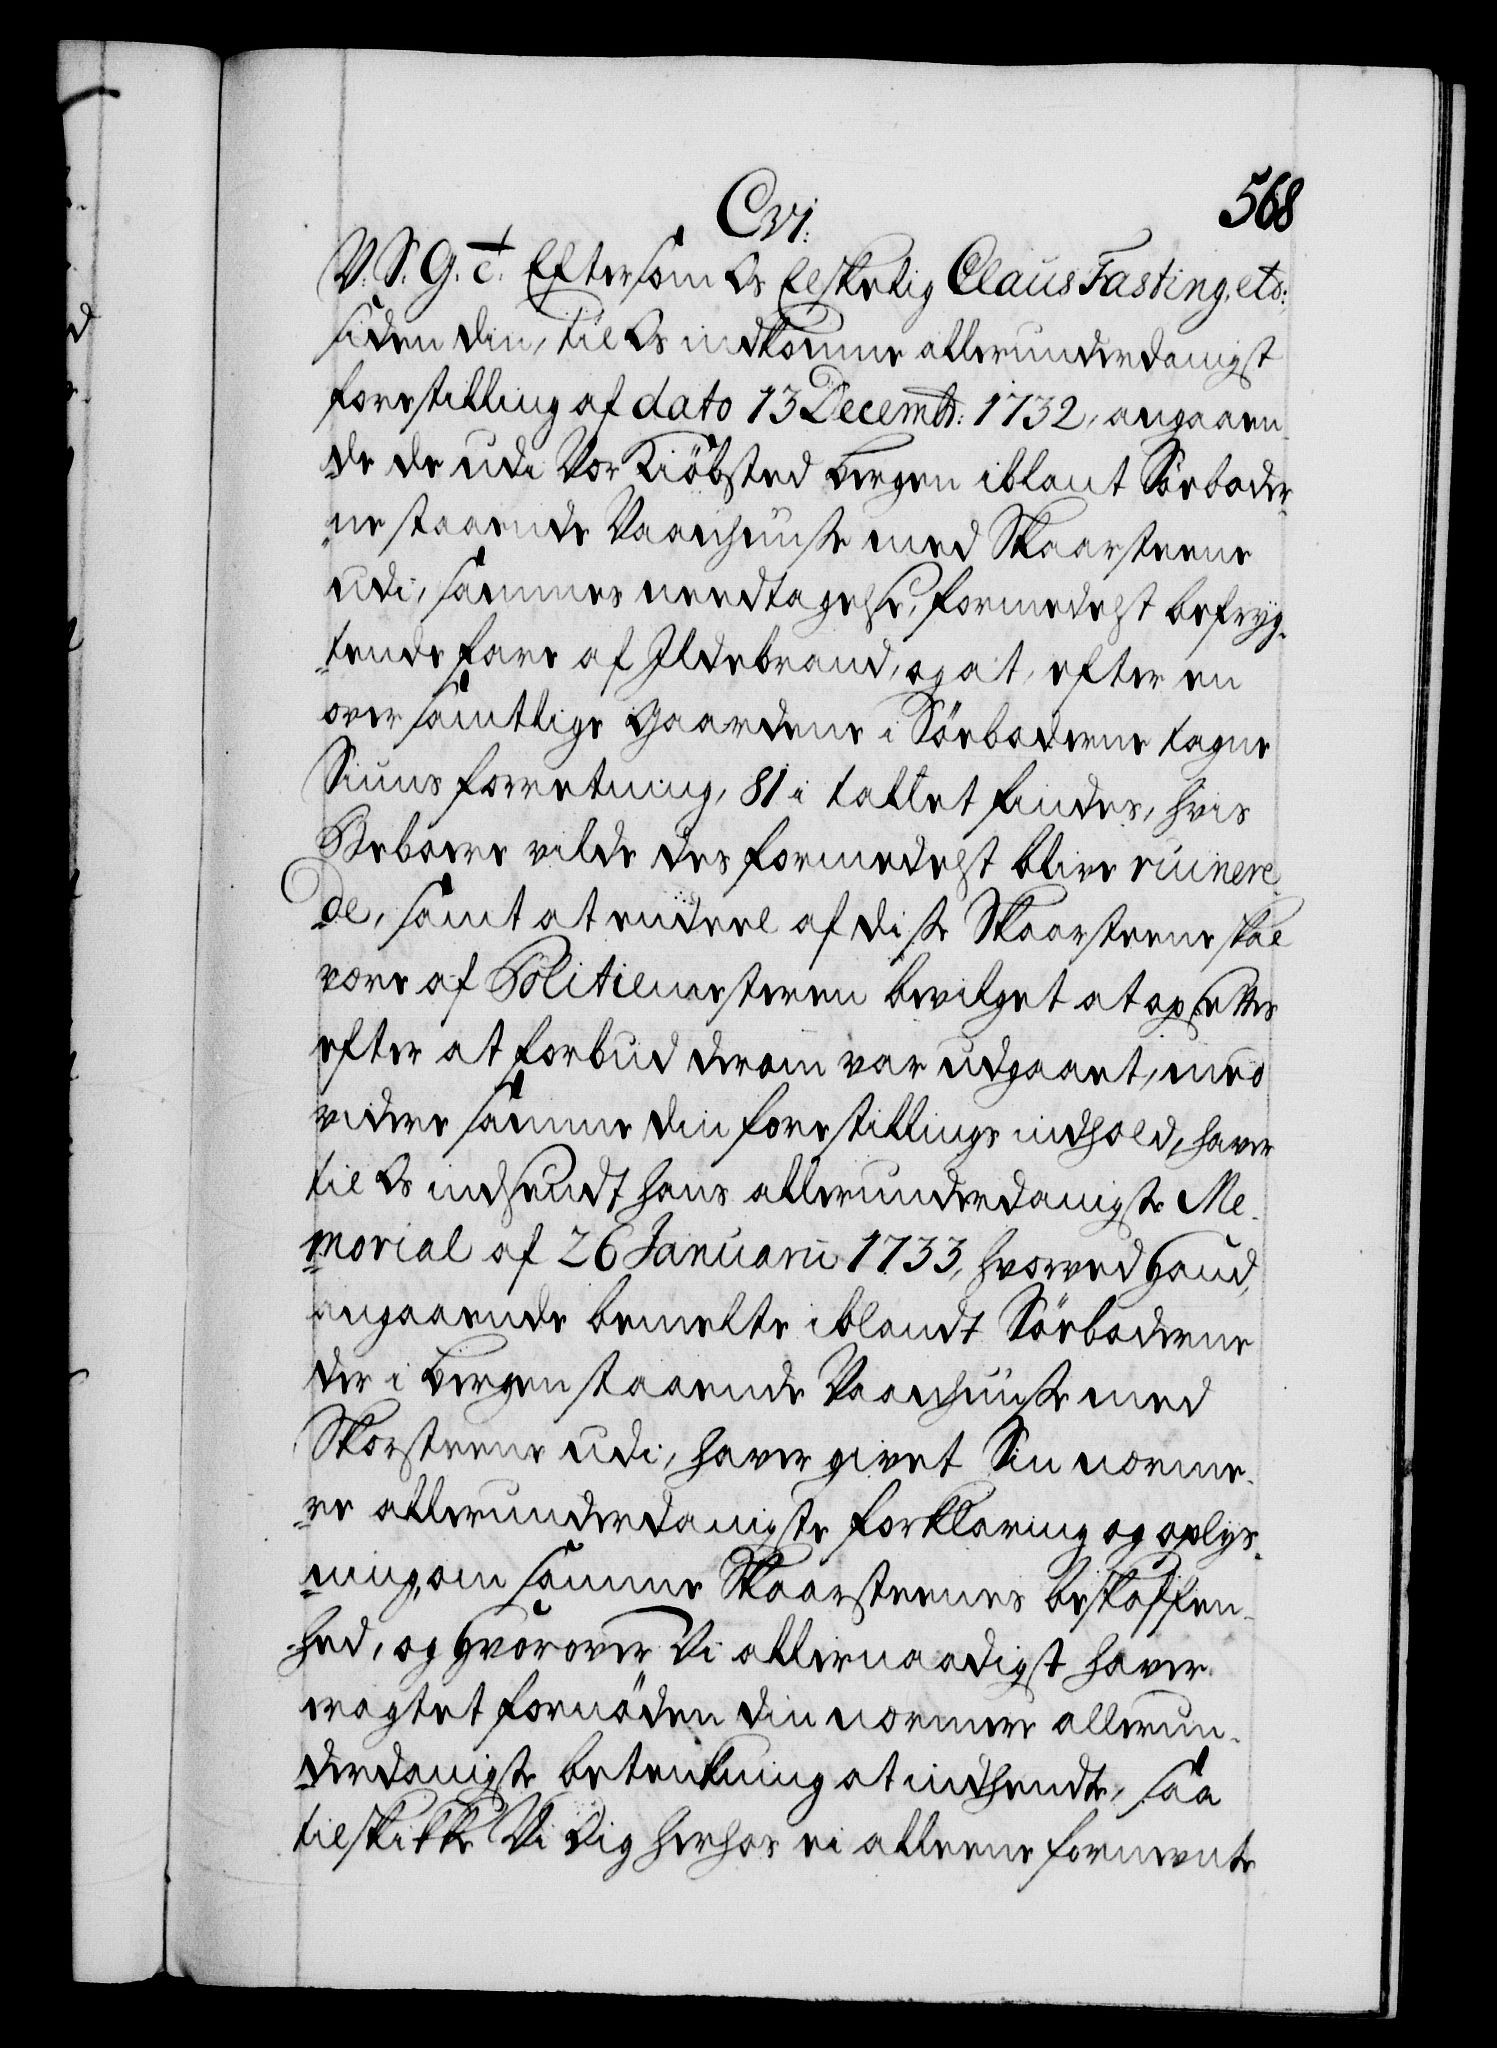 568
Cvi:
V. S. G. t. Eftersom Os Elskelig Claus Fasting, etc:
siden din, til Os indkomne allerunderdanigst
forestilling af dato 13 Decembr: 1732, angaaen-
de de udi Vor Kiöbsted Bergen iblant Söeboder-
ne staaende Vaanhuuse med Skaarsteene
udi, sammes needtagelse, formedelst befryg-
tende fare af Ildebrand, og at, efter en
over samtlige Gaardene i Söeboderne tagne
Siuns forretning, 81 i tallet findes, hvis
Beboere vilde des formedelst blive ruinere-
de, samt at endeel af disse Skaarsteene skal
være af Politiemesteren bevilget at opsettes
efter at forbud derom var udgaaet, med
videre samme din forestillings indhold, haver
til Os indsendt hans allerunderdanigste Me-
morial af 26 Januarii 1733, hvorved Hand,
angaaende bemelte iblandt Söeboderne
der i Bergen staaende Vaanhuuse med
Skorsteene udi, haver givet Sin nærme-
re allerunderdanigste forklaring og oplys-
ning, om samme Skaarsteenes beskaffen-
hed, og hvorover Vi allernaadigst haver
eragtet fornöden din nærmere allerun-
derdanigste betenkning at indhendte, saa
tilskikke Vi Dig herhos ei alleene fornevnte